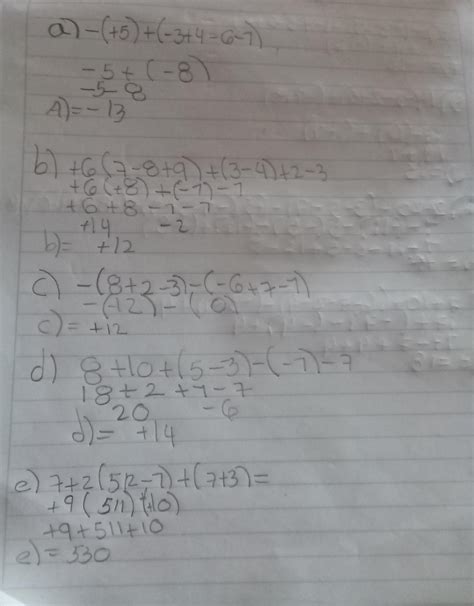 a) -(+5)+(-3+4-6-7)
-5+(-8)
-5-8
A)=-13
b) +6(7-8+9)+(3-4)+2-3
+6(+8)+(-1)-1
+6+8-1-1
+14 -2
b)= +12
c) -(8+2-3)-(-6+7-1)
-(12)-(0)
c)=+12
d) 8+10+(5-3)-(-1)-7
18+2+1-7
20 -6
d)= +14
e) 7+2(512-1)+(7+3)=
+9(511)(+10)
+9+511+10
e)=530